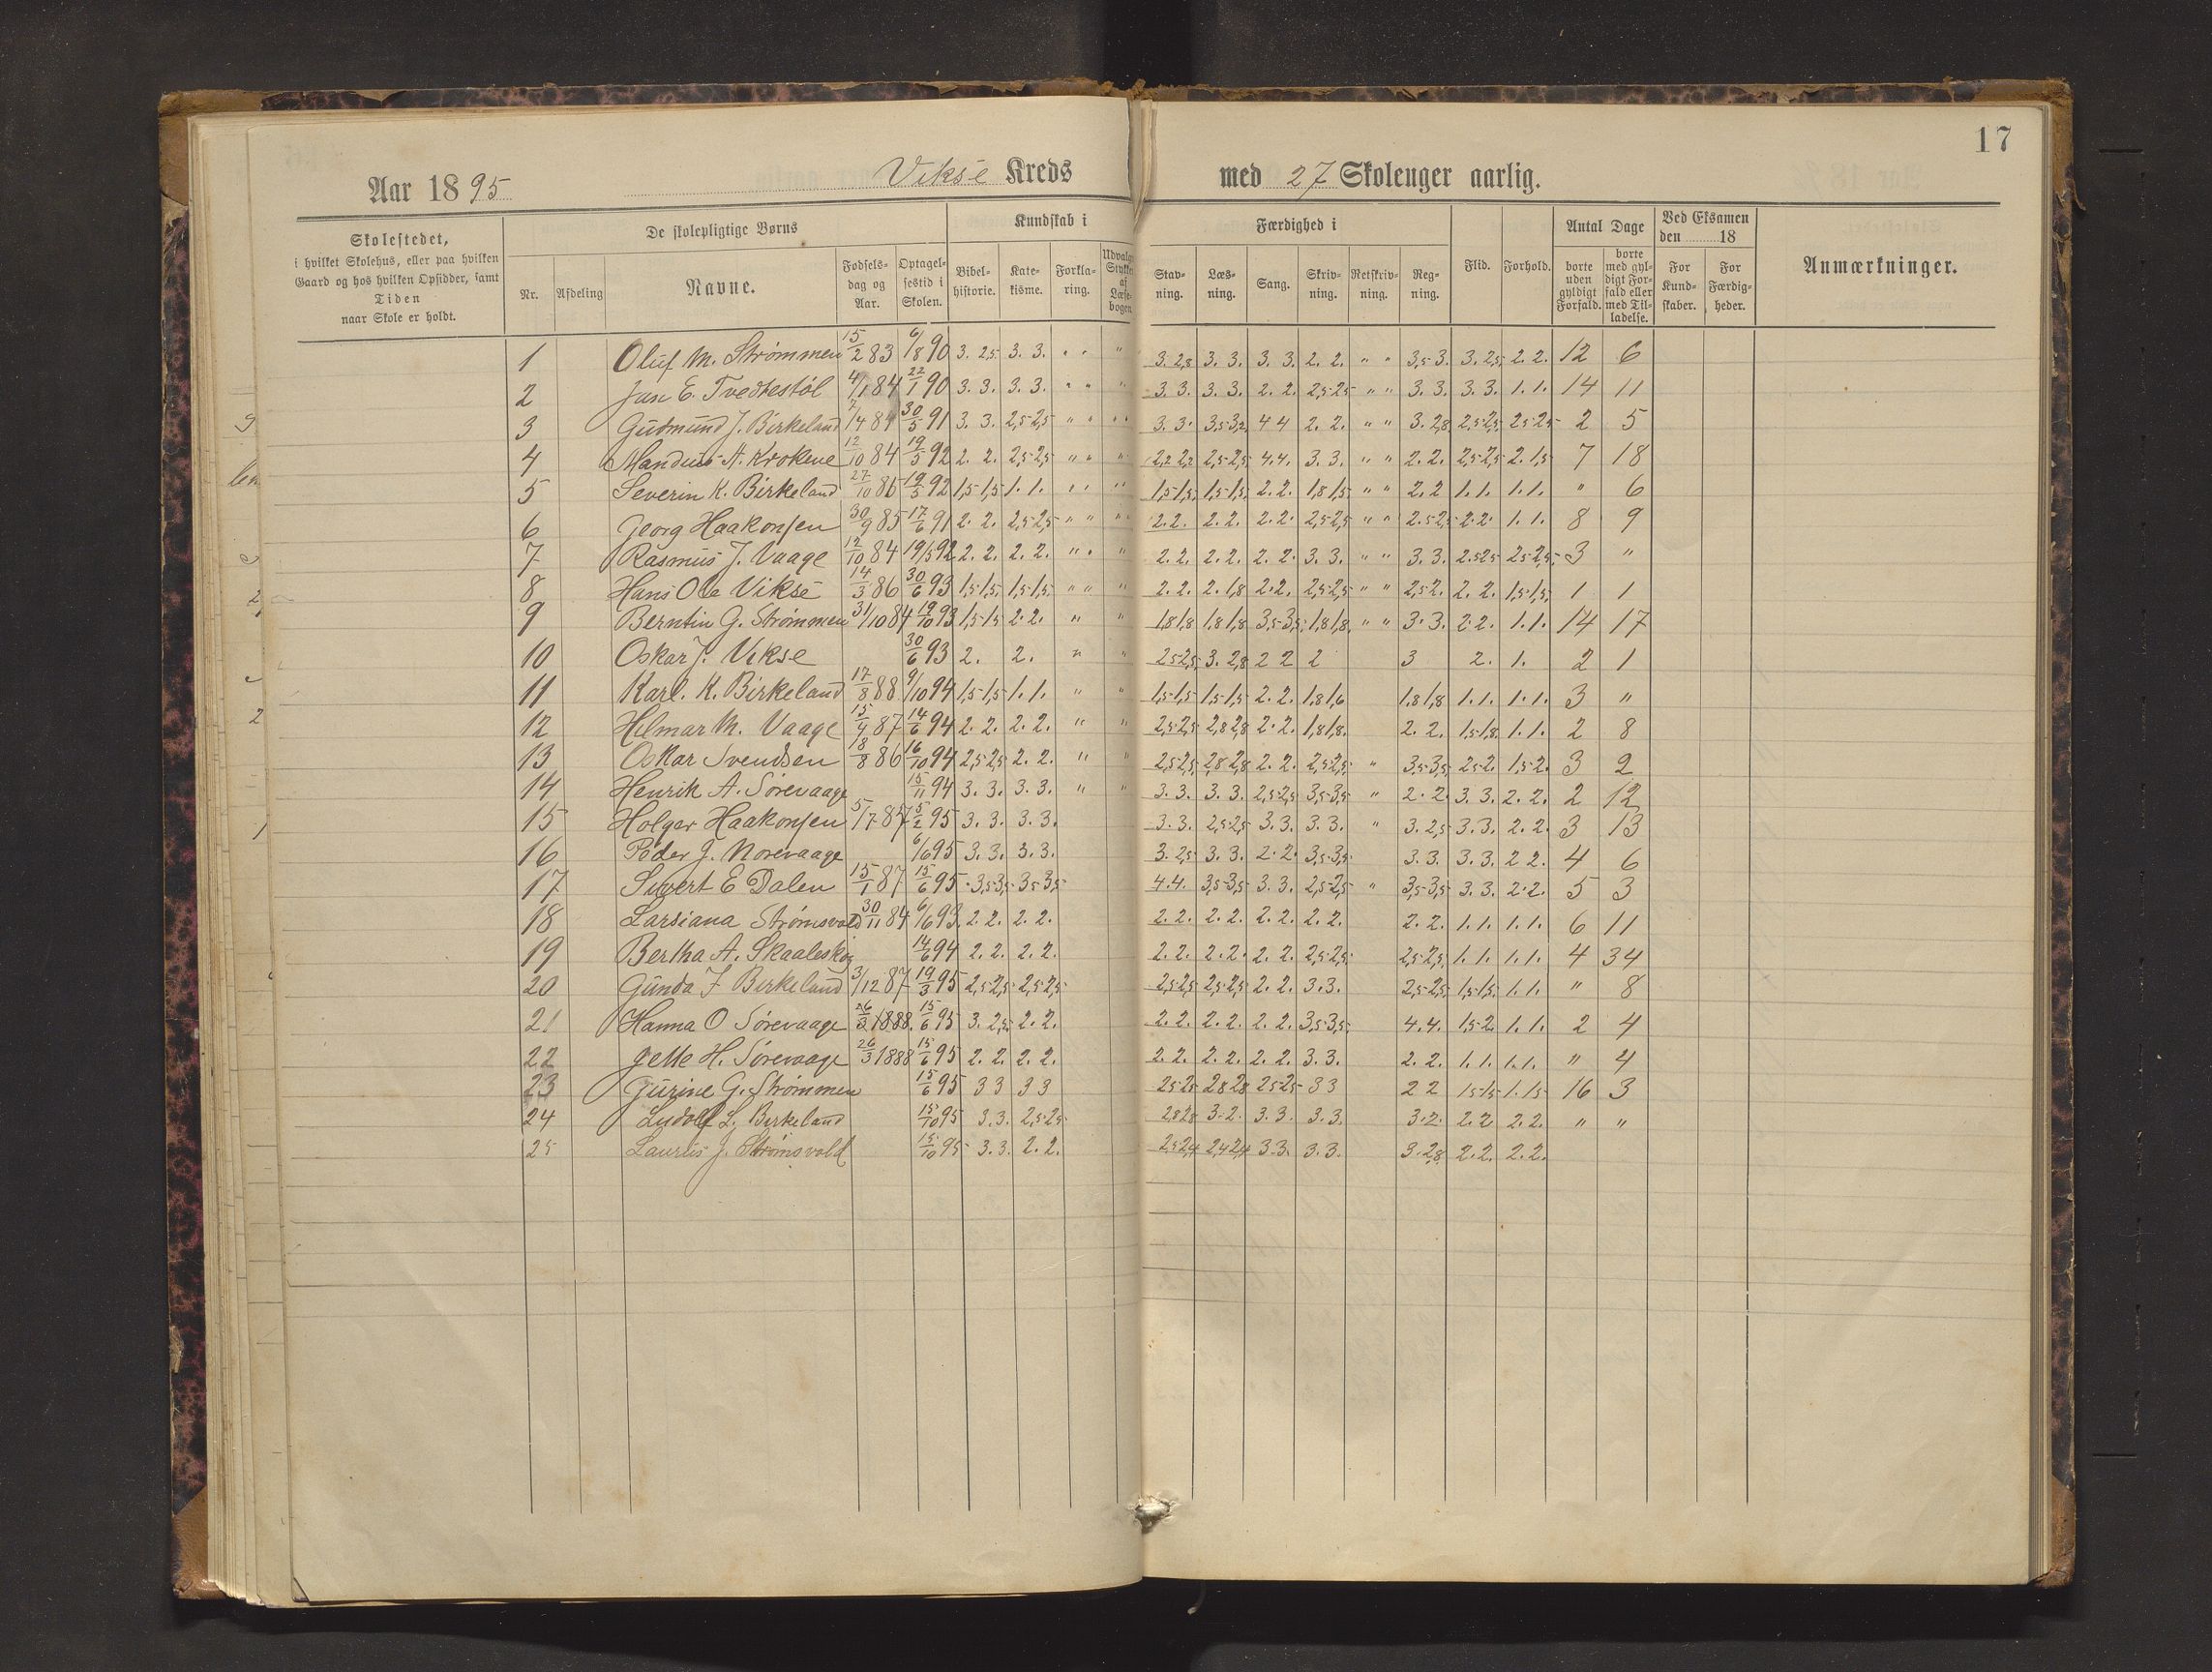 17
Aar 1895 Vikse Kreds med 27 Skoleuger aarlig.
Skolestedet, i hvilket Skolehus, eller paa hvilken Gaard og hos hvilken Opsidder, samt Tiden naar Skole er holdt.
De skolepligtige Børns
Nr. Afdeling Navne. Fødsels-dag og Aar. Optagel-sestid i Skolen.
Kundskab i
Bibel-historie. Kate-kisme. Forkla-ring. Udvalgte Stykker af Læse-bogen
Færdighed i
Stav-ning. Læs-ning. Sang. Skriv-ning. Retskriv-ning. Reg-ning.
Flid. Forhold.
Antal Dage
borte uden gyldigt Forfald. borte med gyl-digt For-fald eller med Til-ladelse.
Ved Eksamen den 18
For Kund-skaber. For Færdig-heder.
Anmærkninger.
1 Oluf M. Strømmen 15/2 83 6/8 90 3. 2,5 3. 3. " " " 3. 2,8 3. 3. 3. 3. 2. 2. " " 3,5 3. 3. 2,5 2. 2. 12 6
2 Jan E. Tvedtestøl 4/1 84 22/1 90 3. 3. 3. 3. " " " 3. 3. 3. 3. 2. 2. 2,5 2,5 " " 3. 3. 3. 3. 1. 1. 14 11
3 Gudmund J. Birkeland 7/4 84 30/5 91 3. 3. 2,5 2,5 " " " " 3. 3. 3,5 3,2 4 4 2. 2. " " 3. 2,8 2,5 2,5 2,5 2,5 2 5
4 Mandius A. Krokene 12/10 84 19/5 92 2. 2. 2,5 2,5 " " " 2,2 2,2 2,5 2,5 4. 4. 3. 3. " " 2. 2. 2,5 2,5 2. 1,5 7 18
5 Severin K. Birkeland 27/10 86 19/5 92 1,5 1,5 1. 1. " " " 1,5 1,5 1,5 1,5 2. 2. 1,8 1,5 " " 2. 2 1. 1. 1. 1. " 6
6 Georg Haakonsen 30/9 85 17/6 91 2. 2. 2,5 2,5 " " " " 2. 2. 2. 2. 2. 2. 2,5 2,5 " " 2. 5 2,5 2. 2. 1. 1. 8 9
7 Rasmus J. Vaage 12/10 84 19/5 92 2. 2. 2. 2. " " " 2. 2. 2. 2. 2. 2. 3. 3. " " 3. 3. 2,5 2,5 2,5 2,5 3 "
8 Hans Ole Vikse 14/3 86 30/6 93 1,5 1,5 1,5 1,5 " " " 2. 2. 2. 1,8 2. 2. 2,5 2,5 " " 2,5 2. 2. 2. 1,5 1,5 1 1
9 Berntin G. Strømmen 31/10 84 19/10 93 1,5 1,5 2. 2. " " 1,8 1,8 1,8 1,8 3,5 3,5 1,8 1,8 " " 3. 3. 2. 2. 1. 1. 14 17
10 Oskar J. Vikse 30/6 93 2. 2. " " 2,5 2,5 3. 2,8 2 2 2 3 2. 1. 2 1
11 Karl. K. Birkeland 17/8 88 9/10 94 1,5 1,5 1. 1. " " 1,5 1,5 1,5 1,5 2. 2. 1,8 1,6 1,8 1,8 1. 1. 1. 1. 3 "
12 Hilmar M. Vaage 15/4 87 14/6 94 2. 2. 2. 2. " " 2,5 2,5 2,8 2,8 2. 2. 1,8 1,8 2. 2. 1,5 1,8 1. 1. 2 8
13 Oskar Svendsen 18/8 86 16/10 94 2,5 2,5 2. 2. " " 2,5 2,5 2,8 2,8 2. 2. 2,5 2,5 " 3,5 3,5 2,5 2. 1,5 2. 3 2
14 Henrik A. Sørevaage 15/11 94 3. 3. 3. 3. " " 3. 3. 3. 3. 2,5 2,5 3,5 3,5 " 2. 2. 3. 3. 2. 2. 2 12
15 Holger Haakonsen 5/7 87 15/2 95 3. 3. 3. 3. 3. 3. 2,5 2,5 3. 3. 3. 3. " 3. 2,5 3. 3. 2. 2. 3 13
16 Peder J. Norevaage 6/6 95 3. 3. 3. 3. 3. 2,5 3. 3. 2. 2. 3,5 3,5 3. 3. 3. 3. 2 2. 4 6
17 Sivert E Dalen 15/1 87 15/6 95 3,5 3,5 3,5 3,5 4. 4. 3,5 3,5 3. 3. 2,5 2,5 " 3,5 3,5 3. 3. 2. 2. 5 3
18 Larsiana Strømsvold 30/11 84 6/6 93 2. 2. 2. 2. 2. 2. 2. 2. 2. 2. 2. 2. 2. 2. 1. 1. 1. 1. 6 11
19 Bertha A. Skaaleskog 14/6 94 2. 2. 2. 2. 2. 2. 2. 2. 2. 2. 2,5 2,5 2,5 2,5 1. 1. 1. 1. 4 34
20 Gunda J Birkeland 3/12 87 19/3 95 2,5 2,5 2,5 2,5 2,5 2,5 2,5 2,5 2. 2. 3. 3. 2,5 2,5 1,5 1,5 1. 1. " 8
21 Hanna O Sørevaage 26/3 1888. 15/6 95 3. 2,5 2. 2. 2. 2. 2. 2. 2. 2. 3,5 3,5 4. 4. 1,5 2. 1. 1. 2 4
22 Jette H. Sørevaage 26/3 1888 15/6 95 2. 2. 2. 2. 2. 2. 2. 2. 2. 2. 3. 3. 2. 2. 1. 1. 1. 1. " 4
23 Gurine G. Strømmen 15/6 95 3 3 3 3 2,5 2,5 2,8 2,8 2,5 2,5 3 3 2 2 1,5 1,5 1. 1,5 16 3
24 Ludolf L. Birkeland 15/10 95 3. 3. 2,5 2,5 2,8 2,8 3. 2. 3. 3. 3. 3. 3. 2. 2. 2. 2. 2. " "
25 Laurits J. Strømsvold 15/10 95 3. 3. 2. 2. 2,5 2,4 2,4 2,4 3. 3. 3. 3. 3. 2,8 2. 2. 2. 2.